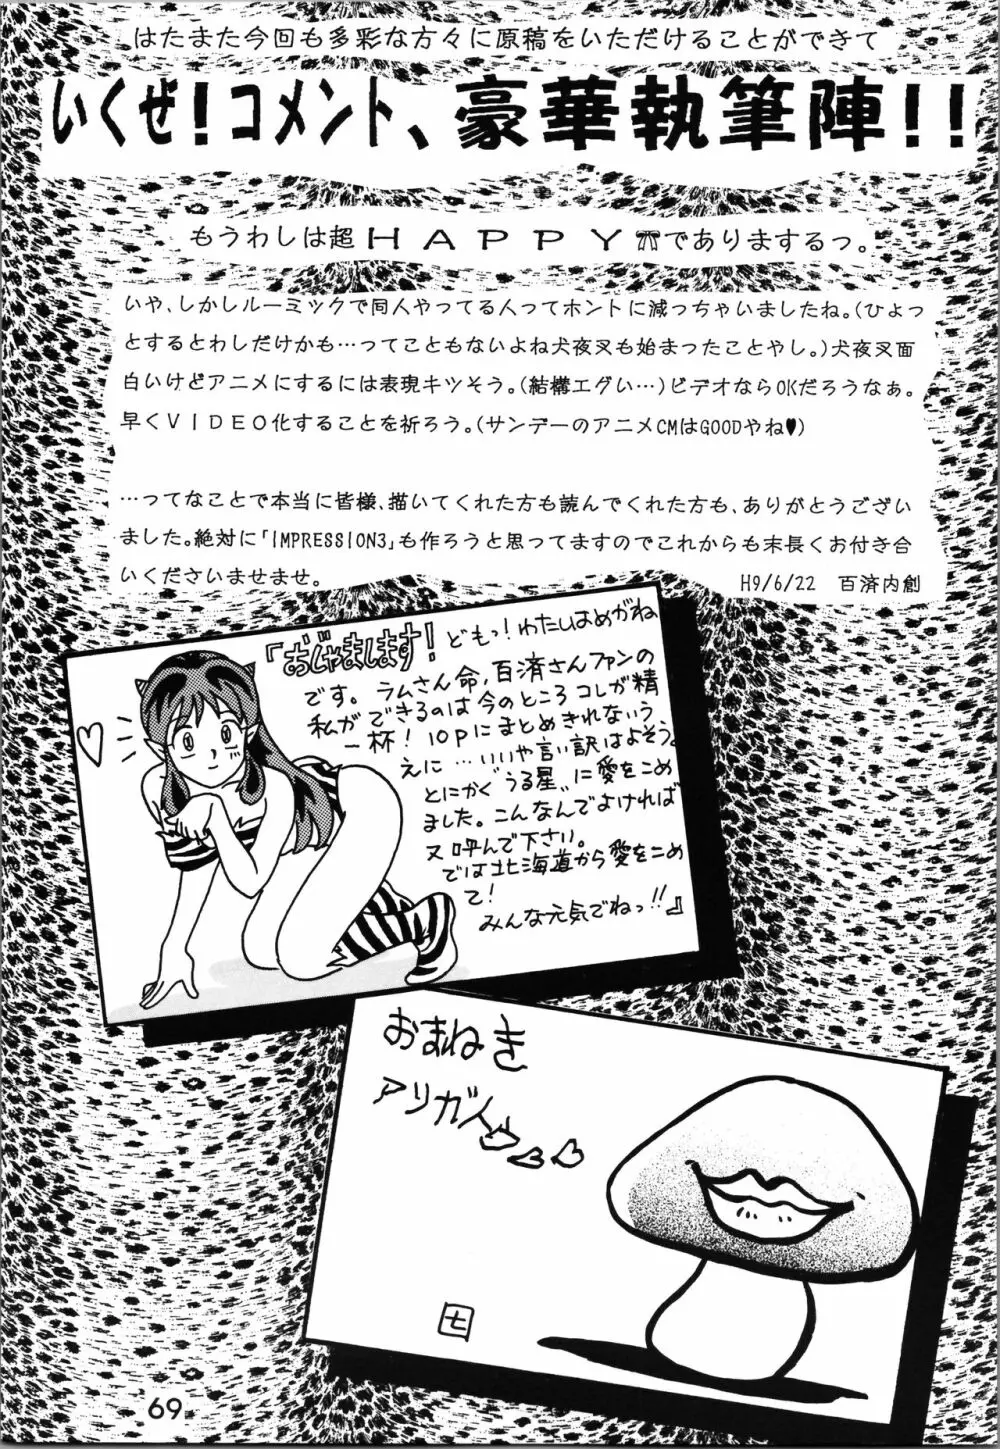 はたまた今回も多彩な方々に原稿をいただけることができて
いくぜ!コメント、豪華執筆陣!!
もうわしは超HAPPYでありまするっ。
いや、しかしルーミックで同人やってる人ってホントに減っちゃいましたね。(ひょっ
とするとわしだけかも…ってこともないよね犬夜叉も始まったことやし。)犬夜叉面
白いけどアニメにするには表現キツそう。(結構エグい…)ビデオならOKだろうなぁ。
早くVIDEO化することを祈ろう。(サンデーのアニメCMはGOODやね♥)
…ってなことで本当に皆様、描いてくれた方も読んでくれた方も、ありがとうござい
ました。絶対に「IMPRESSION3」も作ろうと思ってますのでこれからも末長くお付き合
いくださいませませ。
H9/6/22 百済内創
「おじゃまします!どもっ!わたしはめがね
です。ラムさん命,百済さんファンの
私ができるのは今のところコレが精
一杯!10pにまとめきれないう
えに…いいや言い訳はよそう。
とにかく“うる星”に愛をこめ
ました。こんなんでよければ
又呼んで下さい。
では北海道から愛をこめ
て!
みんな元気でねっ!!』
おまねき
アリガト
七
69